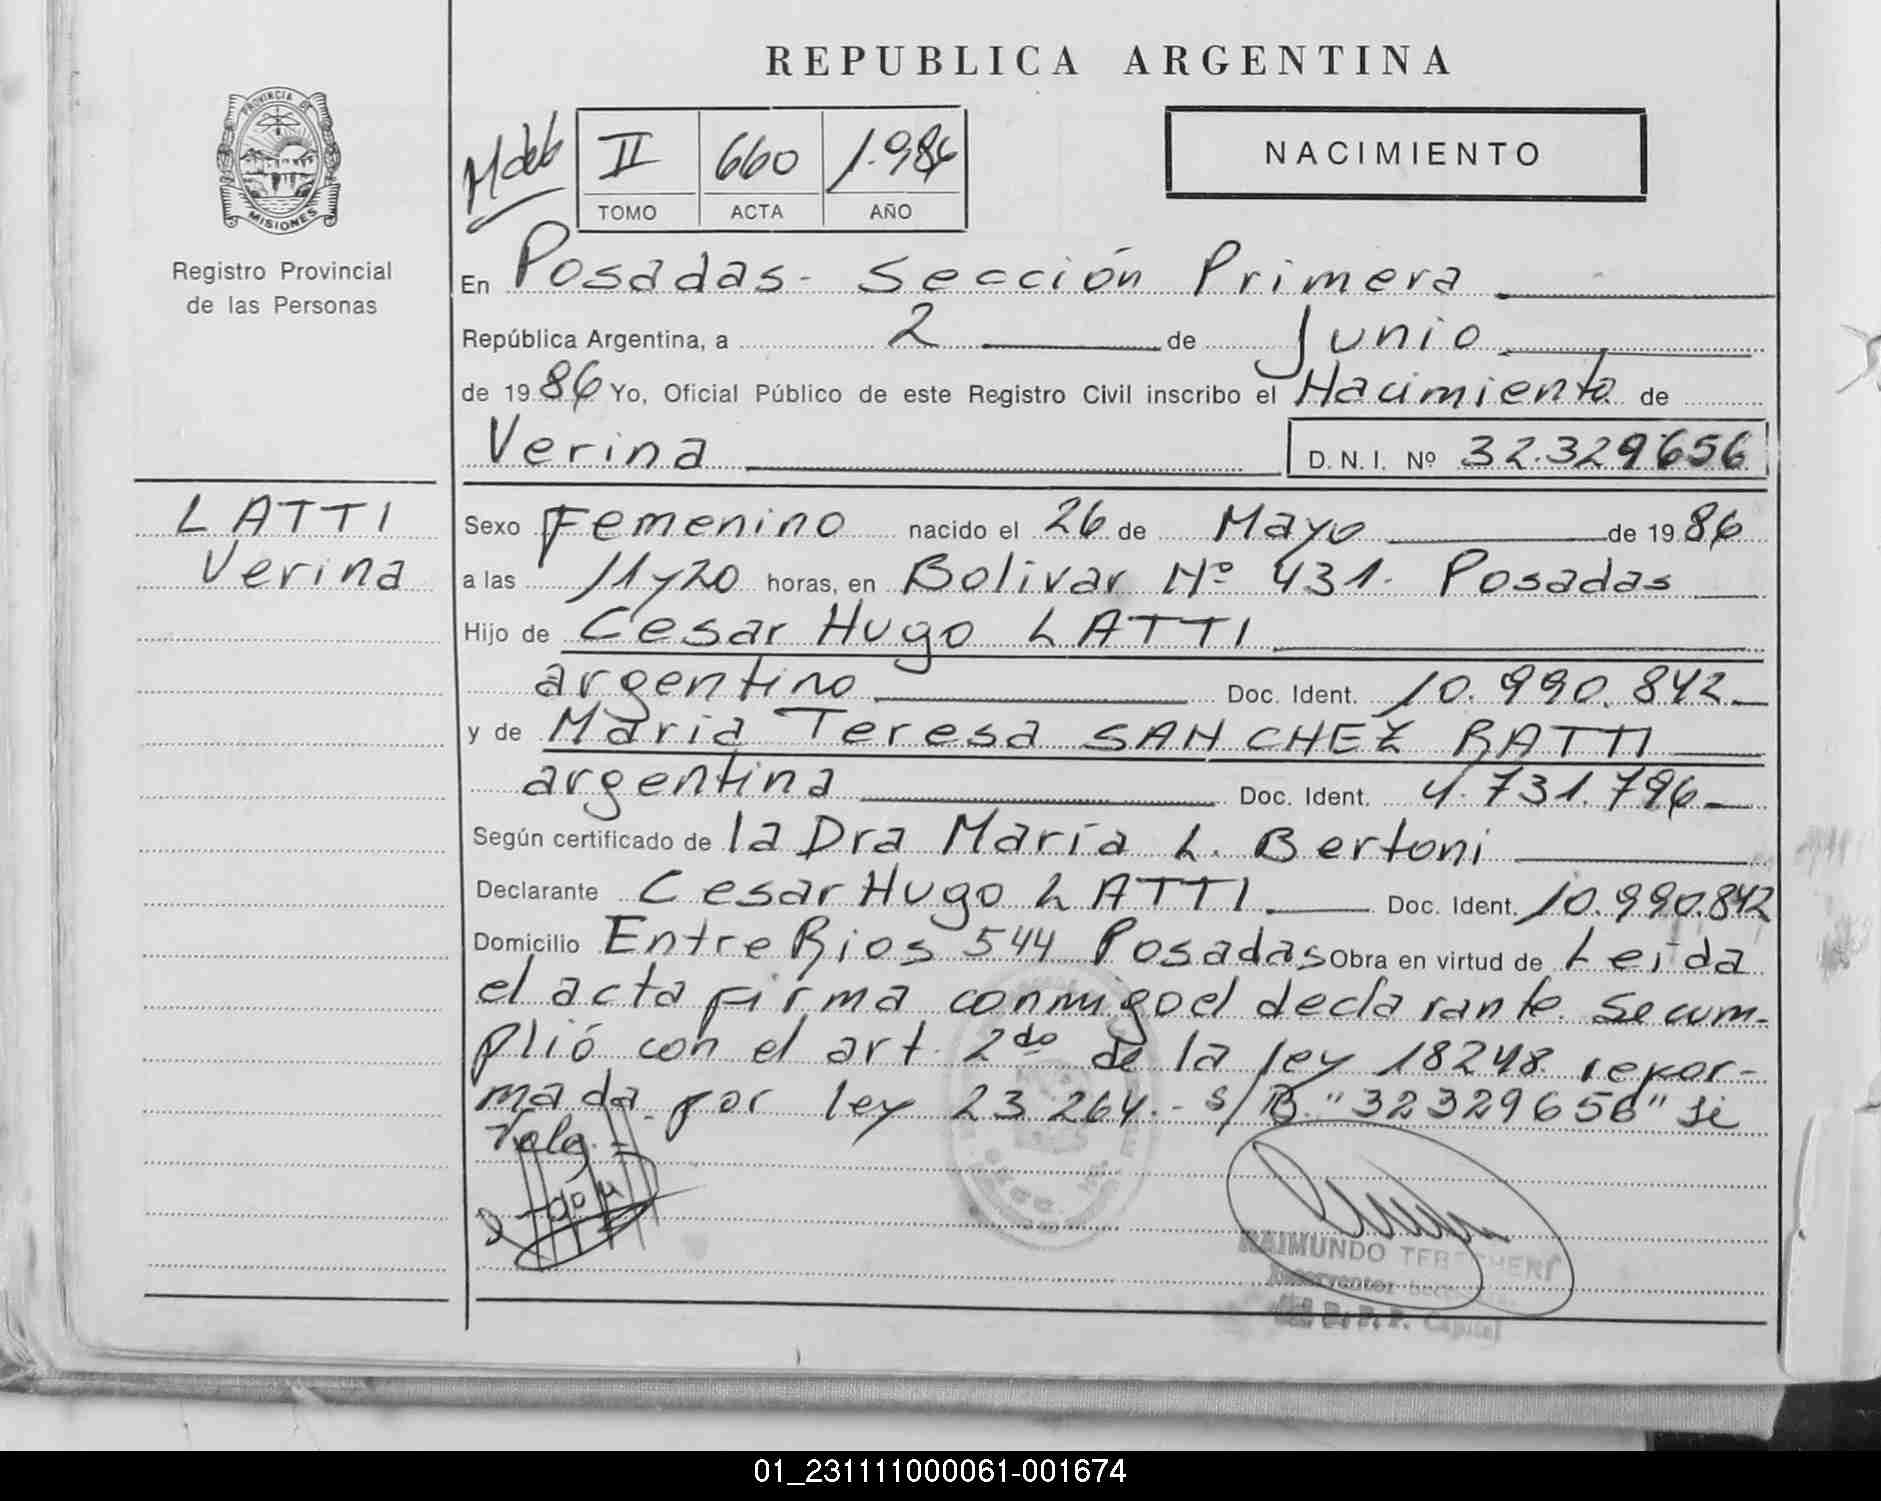 REPUBLICA ARGENTINA
PROVINCIA DE
MISIONES
Registro Provincial
de las Personas
II 660 1.986
TOMO ACTA AÑO
NACIMIENTO
En Posadas - Sección Primera
República Argentina, a 2 de Junio
de 1986 Yo, Oficial Público de este Registro Civil inscribo el Nacimiento de
Verina D. N. I. Nº 32.329656
LATTI
Verina
Sexo Femenino nacido el 26 de Mayo de 1986
a las 11 y 20 horas, en Bolivar Nº 431. Posadas
Hijo de Cesar Hugo LATTI
argentino Doc. Ident. 10.990.842
y de Maria Teresa SANCHEZ RATTI
argentina Doc. Ident. 4.731.796
Según certificado de la Dra María L. Bertoni
Declarante Cesar Hugo LATTI Doc. Ident. 10.990.842
Domicilio Entre Rios 544 Posadas Obra en virtud de Leida
el acta firma conmigo el declarante. Se cum-
plió con el art. 2do de la ley 18248 refor-
mada por ley 23264. - s/B. "32329656" Si
Vale.
RAIMUNDO
Interventor
Capital
01_231111000061-001674